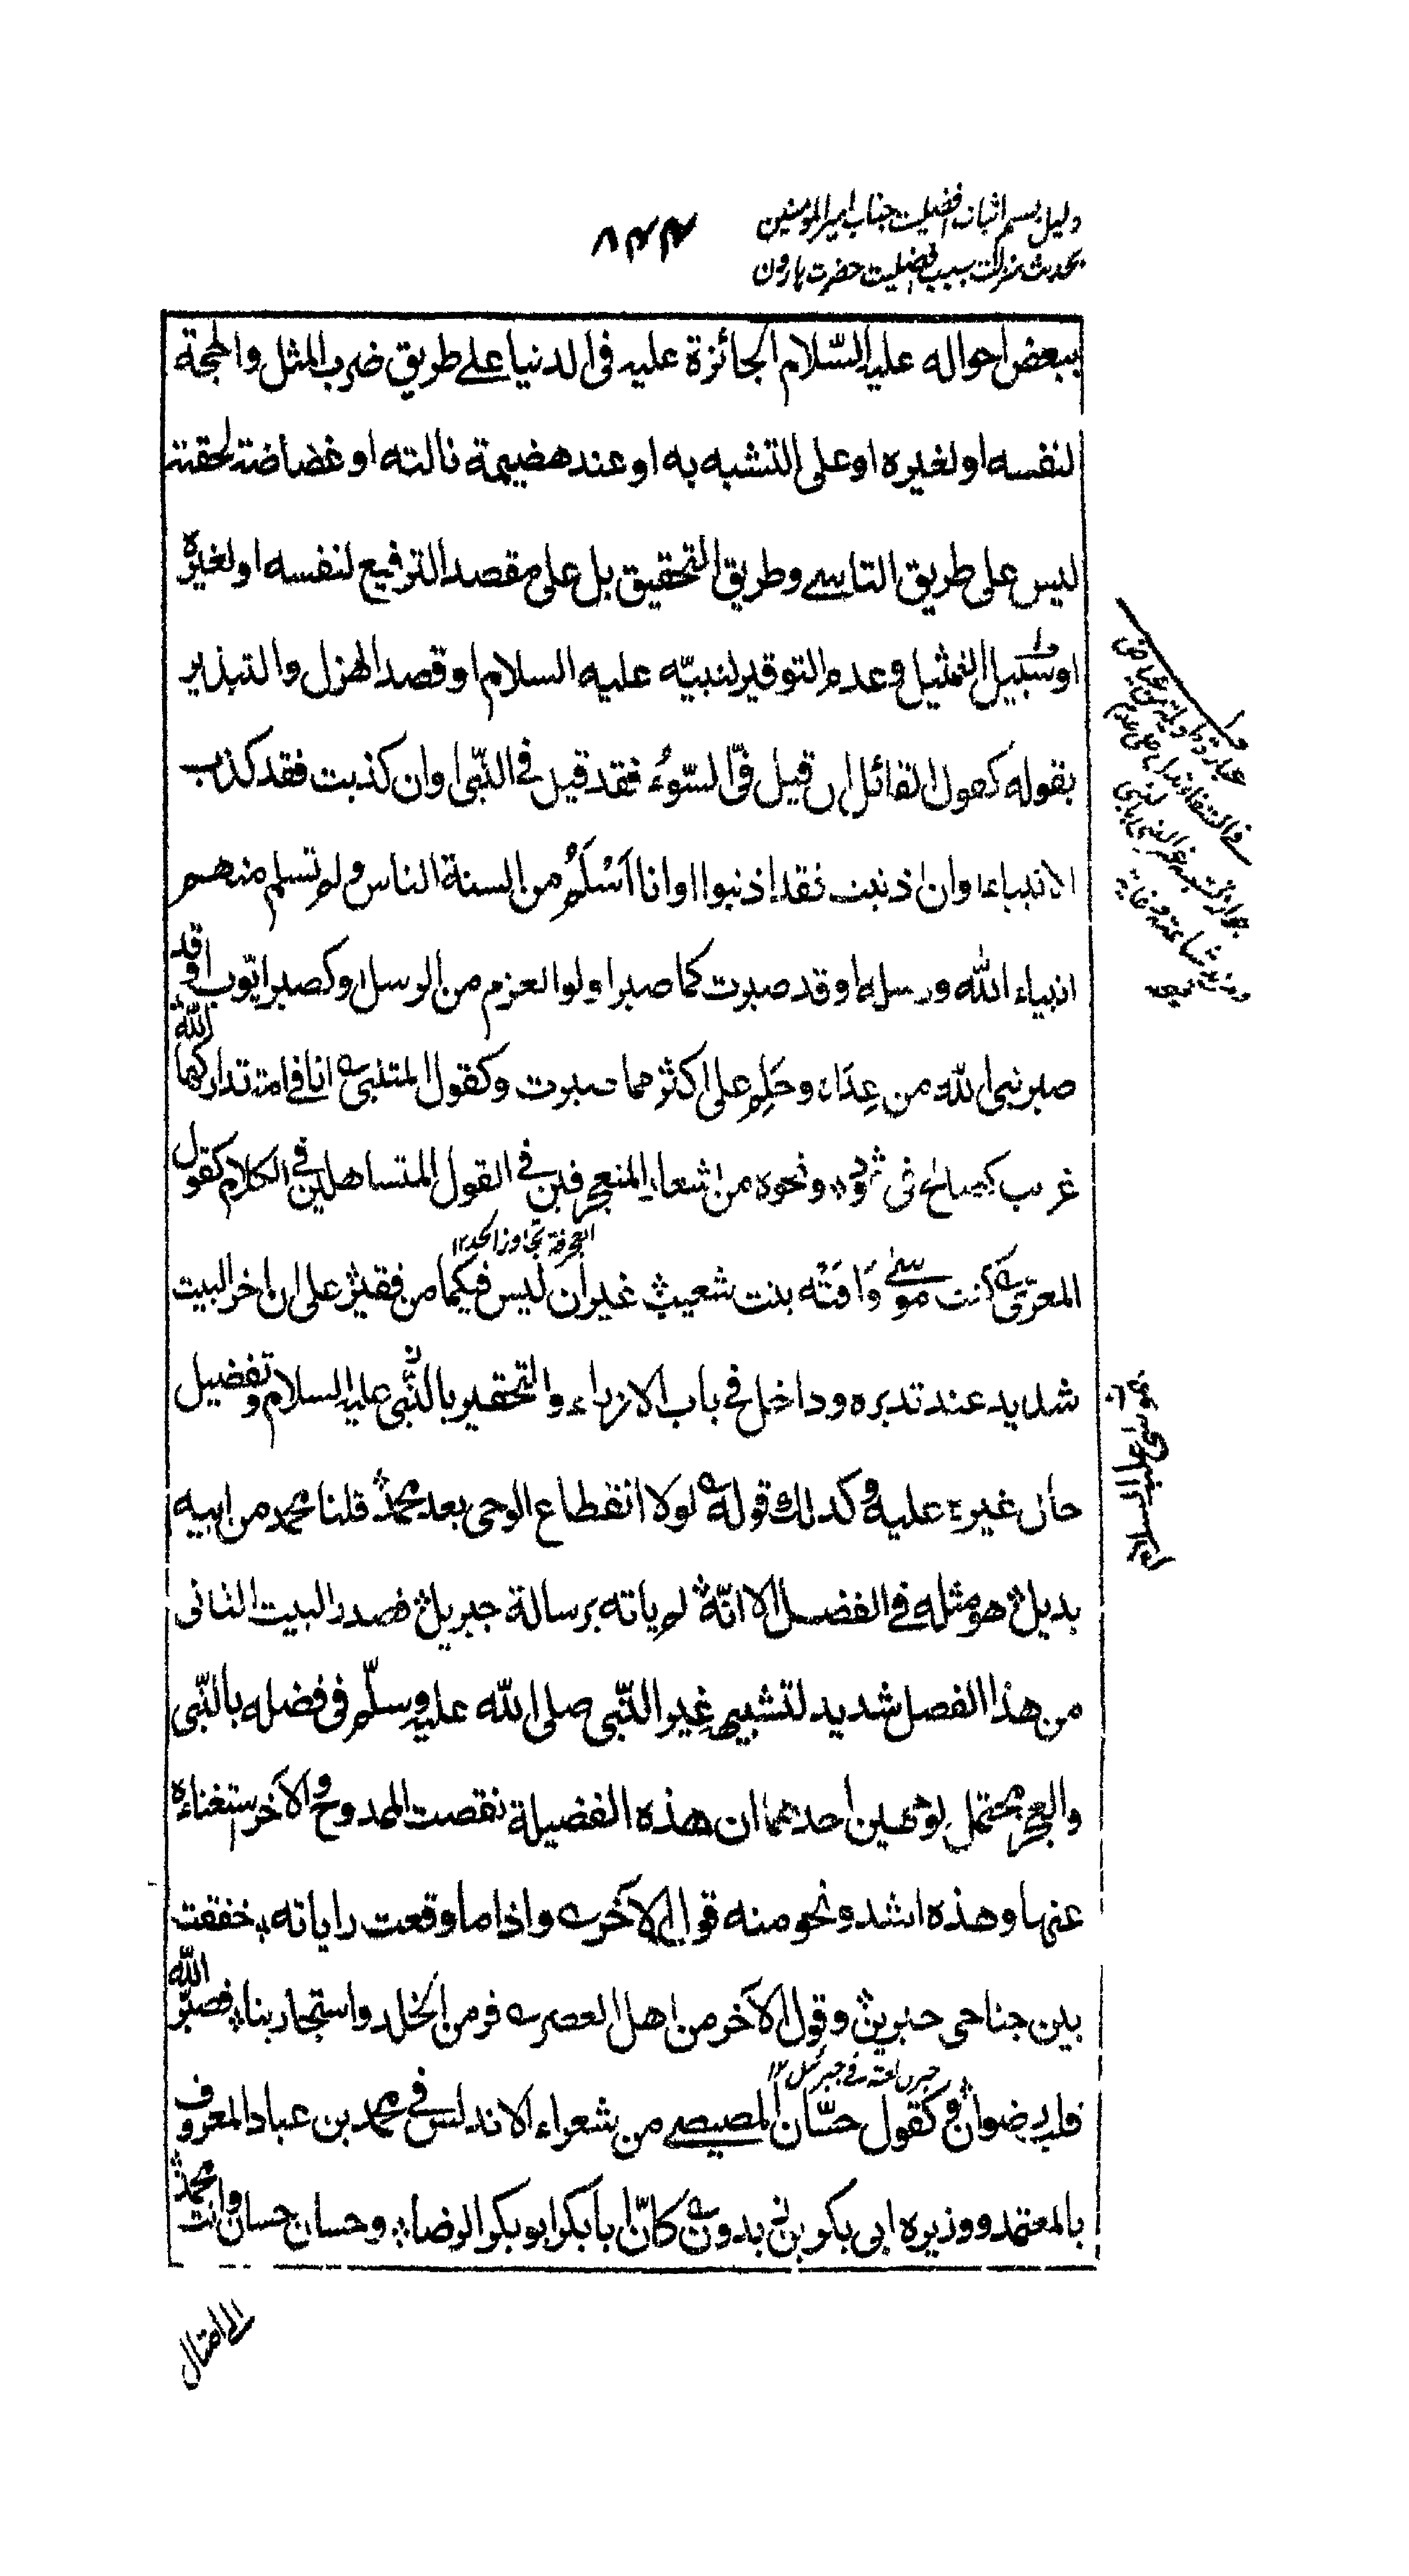 دلیل بسم اثبات افضلیت جناب امیر المومنین
بحدیث منزلت بسبب افضلیت حضرت هارون
۸۴۴
ببعض احواله علیه السّلام الجائزة علیه فی الدنیا علی طریق ضرب المثل والحجة
لنفسه اولغیره اوعلی التشبه به اوعند هضیمة نالته اوغضاضة لحقته
لیس علی طریق التاسی وطریق التحقیق بل علی مقصد الترفیع لنفسه اولغیره
اوسبیل التمثیل وعدم التوقیر لنبیّه علیه السلام اوقصد الهزل والتبذیر
بقوله کقول القائل ان قیل فیّ السّوء فقد قیل فی النّبی اوان کذبت فقد کذب
الانبیاء اوان اذنبت فقد اذنبوا اوانا اَسْلَمُ من السنة الناس ولم تسلم منهم
انبیاء الله ورسله اوقد صبرت کما صبر اولوا العزم من الرسل اوکصبر ایّوب اوقد
صبر نبی الله من عِدَاه وحَلِم علی اکثر مما صبرت وکقول المتنبی انا فی امة تدارکها الله
غریب کصالح فی ثمود ونحوه من اشعار المتعجرفین فی القول المتساهلین فی الکلام کقول
العجرفة تجاوز الحد ۱۲
المعرّی کنت موسی وَافَتْه بنت شعیب غیر ان لیس فیکما من فقیر علی ان اخر البیت
شدید عند تدبره وداخل فی باب الازراء والتحقیر بالنّبی علیه السلام وتفضیل
حال غیره علیه وکذلك قوله لولا انقطاع الوحی بعد محمد قلنا محمد من ابیه
بدیل هو مثله فی الفضل الا انّه لم یاته برسالة جبریل فصدر البیت الثانی
من هذا الفصل شدید لتشبیه غیر النّبی صلی الله علیه وسلّم فی فضله بالنّبی
والعجز محتمل لوجهین احدهما ان هذه الفضیلة نقصت الممدوح والآخر استغناءه
عنها وهذه اشد ونحو منه قول الآخر واذا ما رفعت رایاته خفقت
بین جناحی جبرین وقول الآخر من اهل العصر فر من الخلد واستجار بنا فصبّر الله
جبرین لغة فی جبرئیل ۱۲
قلب رضوان وکقول حسّان المصیصی من شعراء الاندلس فی محمد بن عباد المعروف
بالمعتمد ووزیره ابی بکر بن زیدون کانّ ابا بکر ابو بکر الرضا وحسان حسان وانت محمد
الی امثال